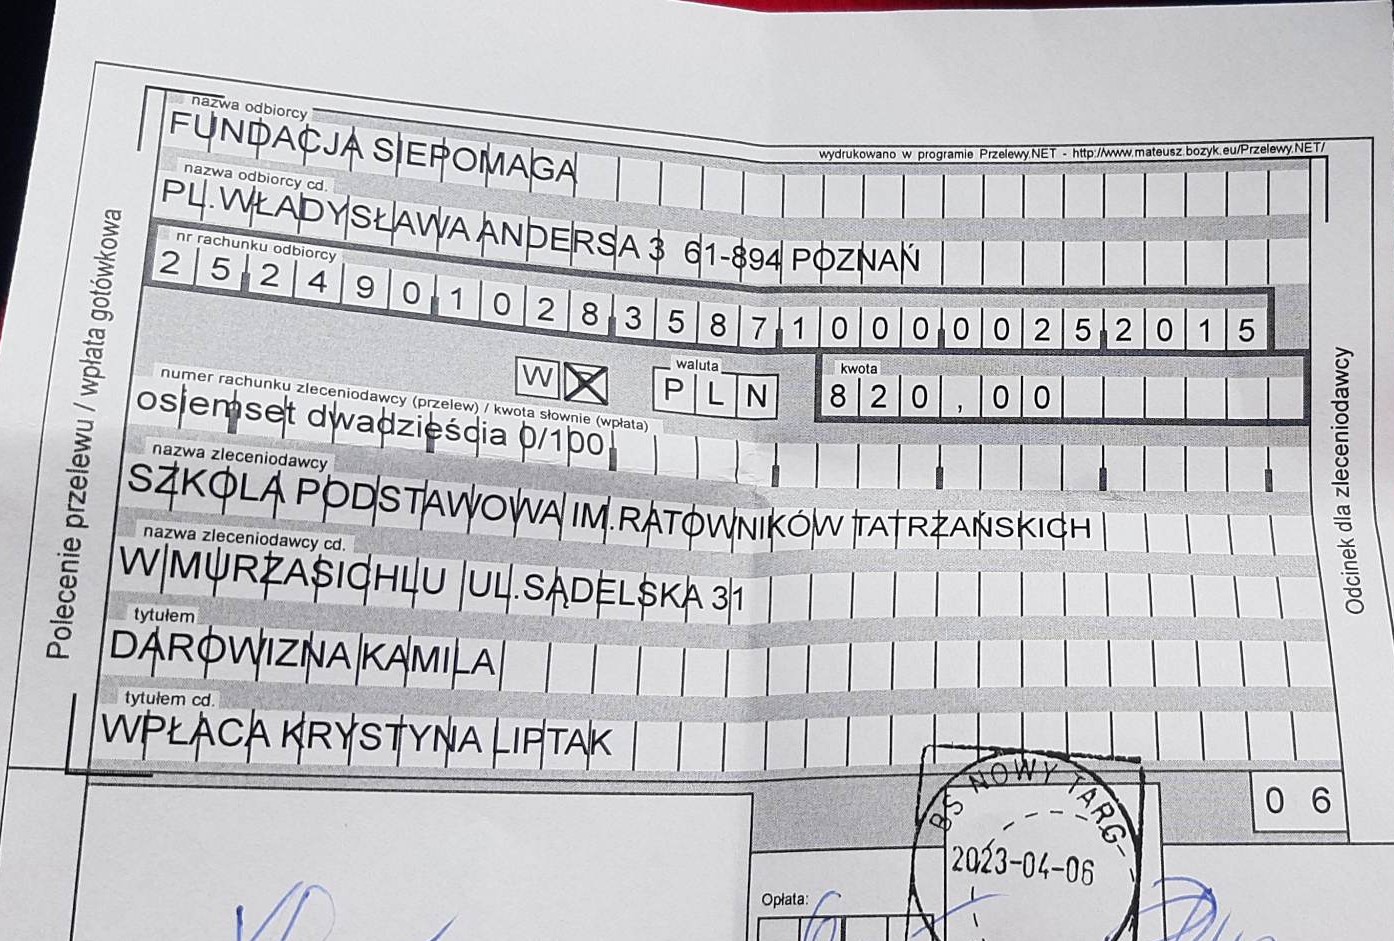 nazwa odbiorcy
FUNDACJA SIEPOMAGA
wydrukowano w programie Przelewy.NET - http://www.mateusz.bozyk.eu/Przelewy.NET/
nazwa odbiorcy cd.
PL.WŁADYSŁAWA ANDERSA 3 61-894 POZNAŃ
nr rachunku odbiorcy
25 2490 1028 3587 1000 0025 2015
W X
waluta
PLN
kwota
820,00
numer rachunku zleceniodawcy (przelew) / kwota słownie (wpłata)
osiemset dwadzieścia 0/100
nazwa zleceniodawcy
SZKOLA PODSTAWOWA IM.RATOWNIKÓW TATRZAŃSKICH
nazwa zleceniodawcy cd.
W MURZASICHLU UL.SĄDELSKA 31
tytułem
DAROWIZNA KAMILA
tytułem cd.
WPŁACA KRYSTYNA LIPTAK
Polecenie przelewu / wpłata gotówkowa
Odcinek dla zleceniodawcy
06
BS NOWY TARG
2023-04-06
Opłata: